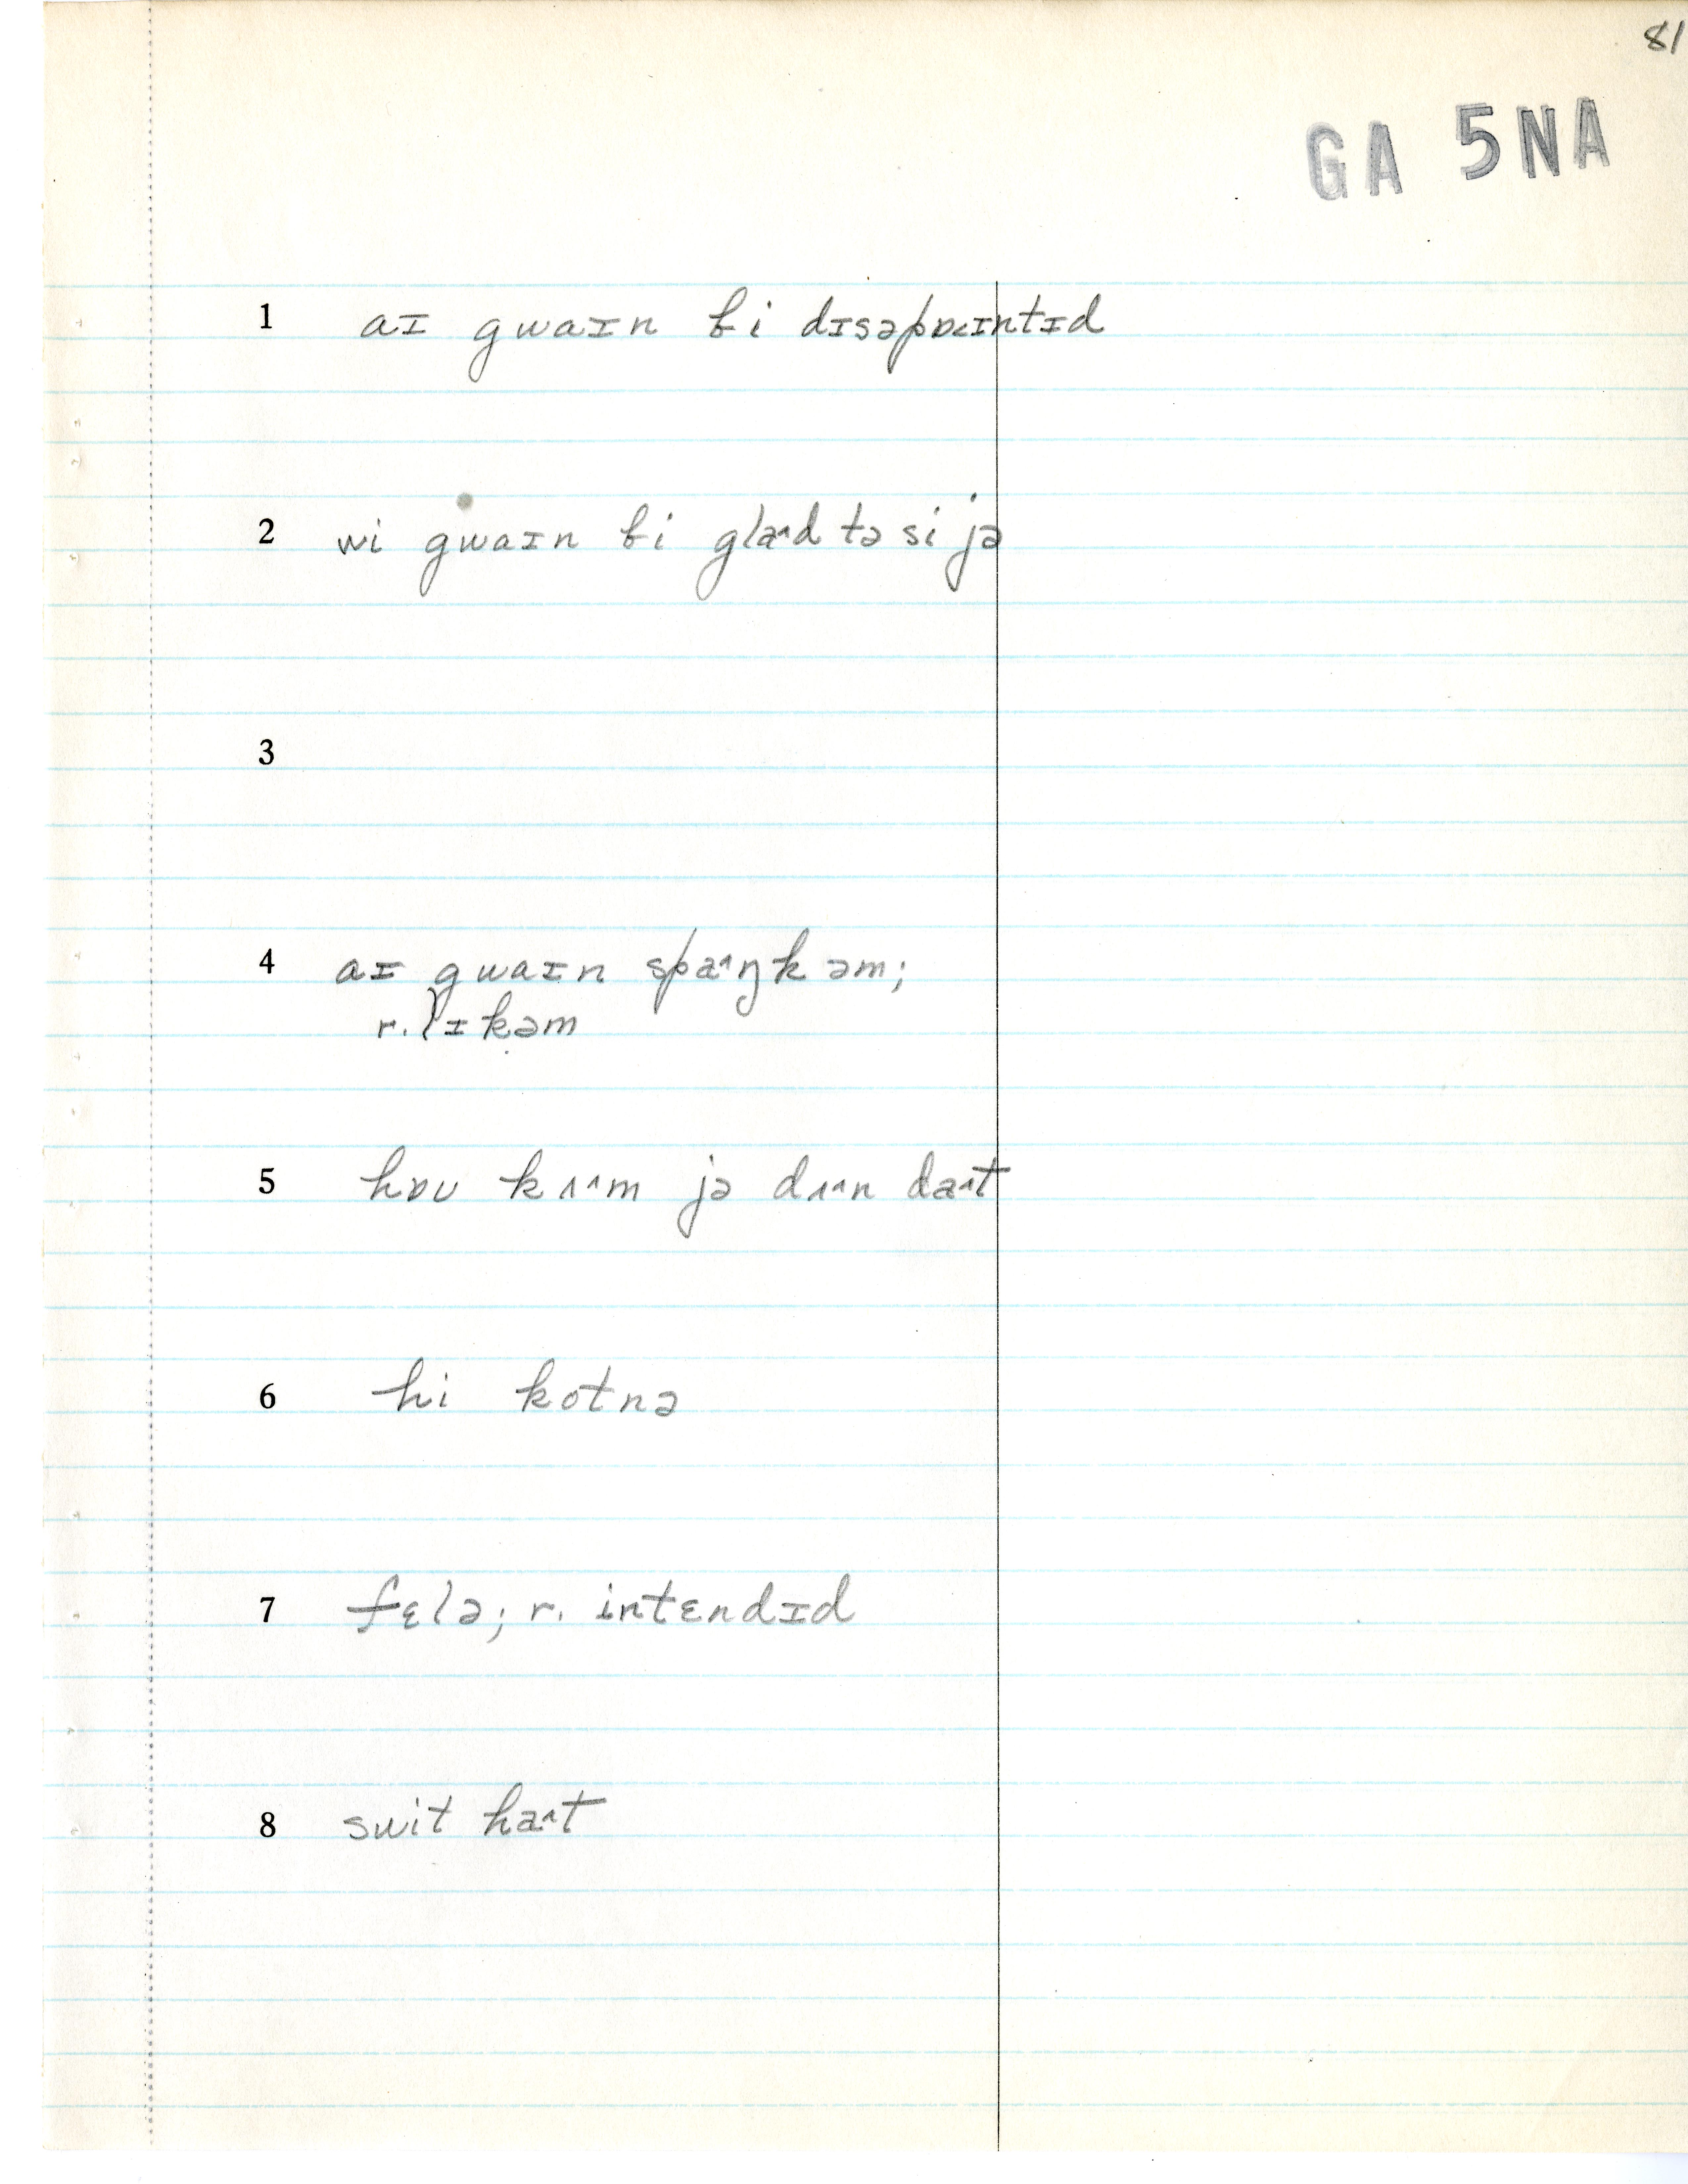 81
GA 5NA
1 aɪ gwaɪn bi dɪsəpɒɪntɪd
2 wi gwaɪn bi gla˄d tə si jə
3
4 aɪ gwaɪn spa˄ŋk əm;
r. lɪkəm
5 hɒu kʌ˄m jə dʌ˄n da˄t
6 hi kotnə
7 fɛlə; r. intɛndɪd
8 swit ha˄t